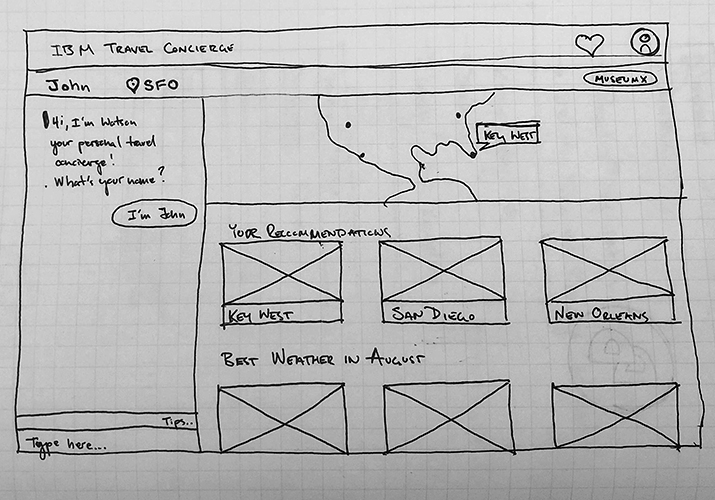 IBM TRAVEL CONCIERGE
John
SFO
MUSEUM X
Hi, I'm Watson
your personal travel
concierge!
. What's your name?
I'm John
KEY WEST
YOUR RECCOMENDATIONS
KEY WEST
SAN DIEGO
NEW ORLEANS
BEST WEATHER IN AUGUST
Tips..
Type here...